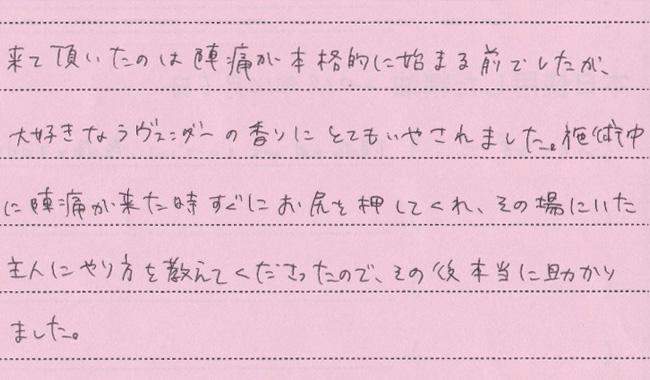 来て頂いたのは陣痛が本格的に始まる前でしたが、
大好きなラヴェンダーの香りにとてもいやされました。施術中
に陣痛が来た時すぐにお尻を押してくれ、その場にいた
主人にやり方を教えてくださったので、その後本当に助かり
ました。